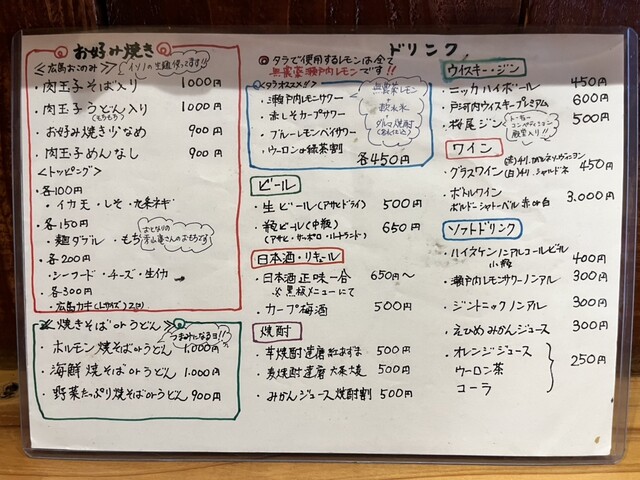 お好み焼き
≪広島おこのみ≫ イソノの生麺使ってます!!
・肉玉子そば入り 1000円
・肉玉子うどん入り 1000円
(もちもち)
・お好み焼き少なめ 900円
・肉玉子めんなし 900円
<トッピング>
・各100円
・イカ天・しそ・九条ネギ
・各150円
・麺ダブル・もち
・各200円
・シーフード・チーズ・生イカ
・各300円
・広島カキ(Lサイズ)2コ
≪焼きそばorうどん≫ つまみになる日!!
・ホルモン焼そばorうどん 1,000円
・海鮮焼そばorうどん 1,000円
・野菜たっぷり焼そばorうどん 900円
ドリンク
◎タラで使用するレモンは全て
無農薬瀬戸内レモンです!!
<タラオススメ!!>
・瀬戸内レモンサワー
・赤しそカープサワー
・ブルーレモンベイサワー
・ウーロンor緑茶割
各450円
無農薬レモン
+
軟水氷
+
ダルマ焼酎
ビール
・生ビール(アサヒドライ) 500円
・瓶ビール(中瓶) 650円
(アサヒ・サッポロ・ハートランド)
日本酒・リキュール
・日本酒正味一合 650円～
※黒板メニューにて
・カープ梅酒 500円
焼酎
・芋焼酎達磨紅あずま 500円
・麦焼酎達磨大麦 500円
・みかんジュース焼酎割 500円
ウイスキー・ジン
・ニッカハイボール 450円
・戸河内ウイスキープレミアム 600円
・桜尾ジン 500円
トーキョー
コンペティション
殿堂入り!!
ワイン
・グラスワイン 450円
・ボトルワイン 3,000円
ボルドーシャトーベル赤or白
ソフトドリンク
・ハイネケンノンアルコールビール
小瓶 400円
・瀬戸内レモンサワーノンアル 300円
・ジントニックノンアル 300円
・えひめみかんジュース 300円
・オレンジジュース
ウーロン茶
コーラ
250円